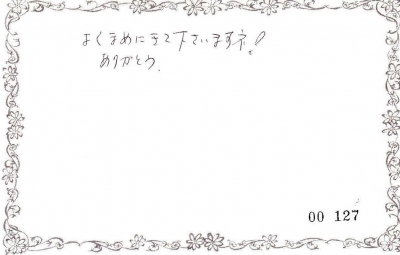 よくまめにきて下さいますネ!
ありがとう.
00 127